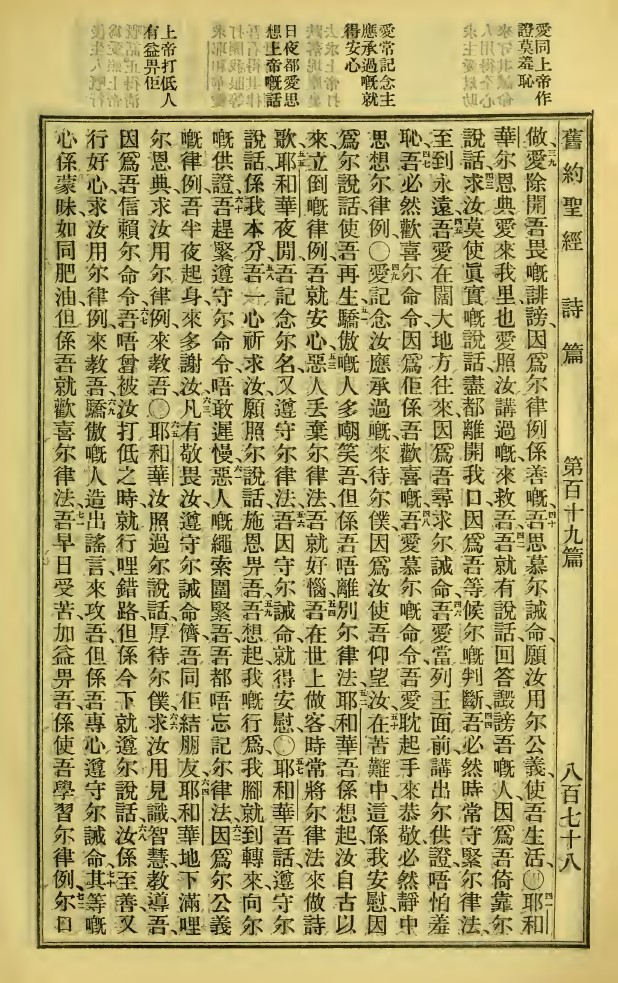 愛同上帝作
證莫羞恥
愛常記念主
應承過嘅就
得安心
日夜都愛思
想上帝嘅話
上帝打低人
有益畀佢
舊約聖經 詩篇 第百十九篇 八百七十八
做、三九愛除開吾畏嘅誹謗、因爲尔律例係善嘅、四十吾思慕尔誡命、願汝用尔公義使吾生活、〇四一耶和
華、尔恩典愛來我里、也愛照汝講過嘅來救吾、四二吾就有說話回答譭謗吾嘅人、因爲吾倚靠尔
說話、四三求汝莫使眞實嘅說話盡都離開我口、因爲吾等候尔嘅判斷、四四吾必然時常守緊尔律法、
至到永遠、四五吾愛在闊大地方往來、因爲吾尋求尔誡命、四六吾愛當列王面前講出尔供證、唔怕羞
恥、四七吾必然歡喜尔命令、因爲佢係吾歡喜嘅、四八吾愛慕尔嘅命令、吾愛耽起手來恭敬、必然靜中
思想尔律例、〇四九愛記念汝應承過嘅來待尔僕、因爲汝使吾仰望汝、五十在苦難中這係我安慰、因
爲尔說話使吾再生、五一驕傲嘅人多嘲笑吾、但係吾唔離別尔律法、五二耶和華、吾係想起汝自古以
來立倒嘅律例、吾就安心、五三惡人丟棄尔律法、吾就好惱、五四吾在世上做客時、常將尔律法來做詩
歌、五五耶和華、夜間吾記念尔名、又遵守尔律法、五六吾因守尔誡命、就得安慰、〇五七耶和華、吾話遵守尔
說話、係我本分、五八吾一心祈求汝、願照尔說話施恩畀吾、五九吾想起我嘅行爲、我腳就到轉來向尔
嘅供證、六十吾趕緊遵守尔命令、唔敢遲慢、六一惡人嘅繩索圍緊吾、吾都唔忘記尔律法、六二因爲尔公義
嘅律例、吾半夜起身來多謝汝、六三凡有敬畏汝、遵守尔誡命儕、吾同佢結朋友、六四耶和華、地下滿哩
尔恩典、求汝用尔律例來教吾、〇六五耶和華、汝照過尔說話、厚待尔僕、六六求汝用見識智慧教導吾、
因爲吾信賴尔命令、六七吾唔曾被汝打低之時、就行哩錯路、但係今下就遵尔說話、六八汝係至善、又
行好心、求汝用尔律例來教吾、六九驕傲嘅人造出謠言來攻吾、但係吾專心遵守尔誡命、七十其等嘅
心係蒙昧、如同肥油、但係吾就歡喜尔律法、七一吾早日受苦、加益畀吾、係使吾學習尔律例、七二尔口